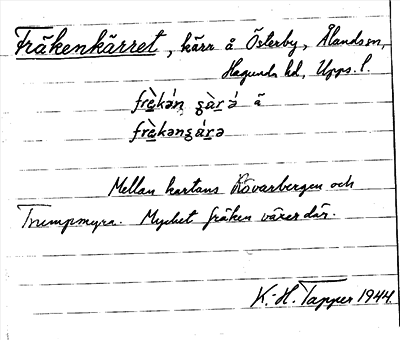 Fräkenkärret, kärr å Österby, Ålands sn,
Hagunda hd, Upps. l.
frèkən̗ ʂàrə́ ã
frèkənʂárə
Mellan kartans Rövarbergen och
Trumpmyra. Mycket fräken växer där.
K.-H. Tapper 1944.